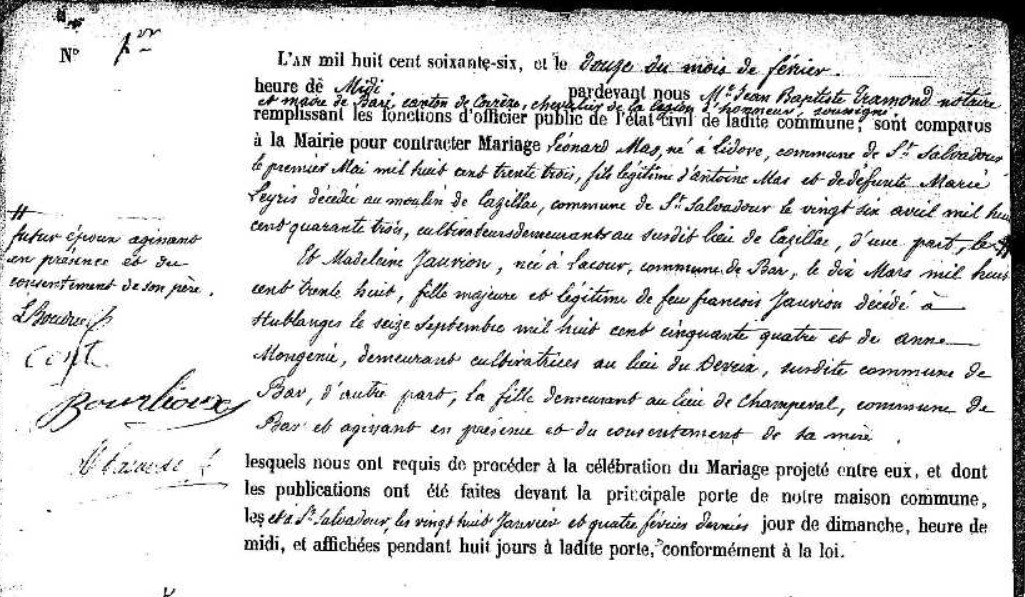 N° 1er
L'AN mil huit cent soixante-six, et le douze du mois de février.
heure de Midi pardevant nous Me Jean Baptiste Tramond notaire
et maire de Bar, canton de Corrèze, chevalier de la légion d'honneur, soussigné,
remplissant les fonctions d'officier public de l'état civil de ladite commune, sont comparus
à la Mairie pour contracter Mariage Léonard Mas, né à Lidove, commune de St Salvadour
le premier Mai mil huit cent trente trois, fils légitime d'antoine Mas et de défunte Marie
Leyris décédée au moulin de Cazillac, commune de St Salvadour le vingt six avril mil huit
cent quarante trois, cultivateurs demeurants au susdit lieu de Cazillac, d'une part, le #
#
futur époux agissant
en présence et du
consentement de son père.
Et Madeleine Jauvion, née à Lacour, commune de Bar, le dix Mars mil huit
cent trente huit, fille majeure et légitime de feu françois Jauvion décédé à
Stublanges le seize Septembre mil huit cent cinquante quatre et de anne
Mongenie, demeurant cultivatrices au lieu du Deveix, susdite commune de
Bar, d'autre part, la fille demeurant au lieu de Champeval, commune de
Bar et agissant en présence et du consentement de sa mère.
Bourlioux
lesquels nous ont requis de procéder à la célébration du Mariage projeté entre eux, et dont
les publications ont été faites devant la principale porte de notre maison commune,
les et à St Salvadour, les vingt huit Janvier et quatre février derniers jour de dimanche, heure de
midi, et affichées pendant huit jours à ladite porte, conformément à la loi.